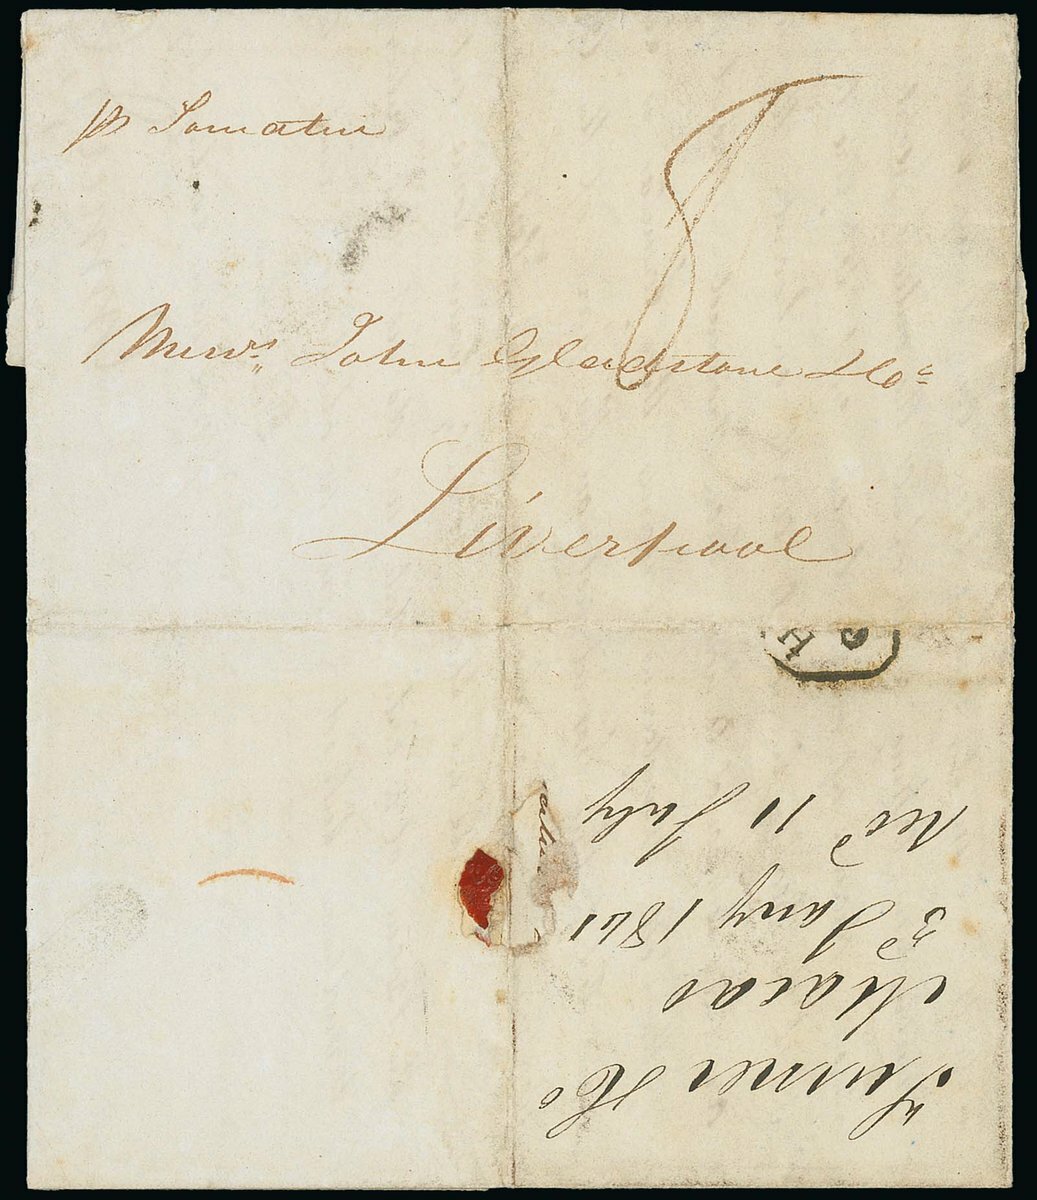 p Somatin
8
Messrs. John Gladstone & Co
Liverpool
Turner & Co
Macao
3d Jany 1841
Recd 11 July